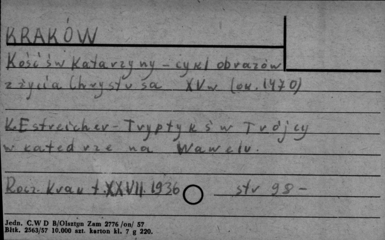 KRAKÓW
Kość św Katarzyny - cykl obrazów
z życia Chrystusa XV w (ok. 1470)
K. Estreicher - Tryptyk św Trójcy
w katedrze na Wawelu.
Rocz. Krak t. XXVII. 1936 str 98 -
Jedn. C.W D B/Olsztyn Zam 2776 /on/ 57
Blzk. 2563/57 10.000 szt. karton kl. 7 g 220.